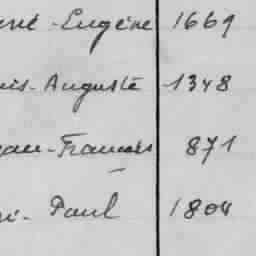 -Eugène 1669
-Auguste 1348
-François 871
- Paul 1804